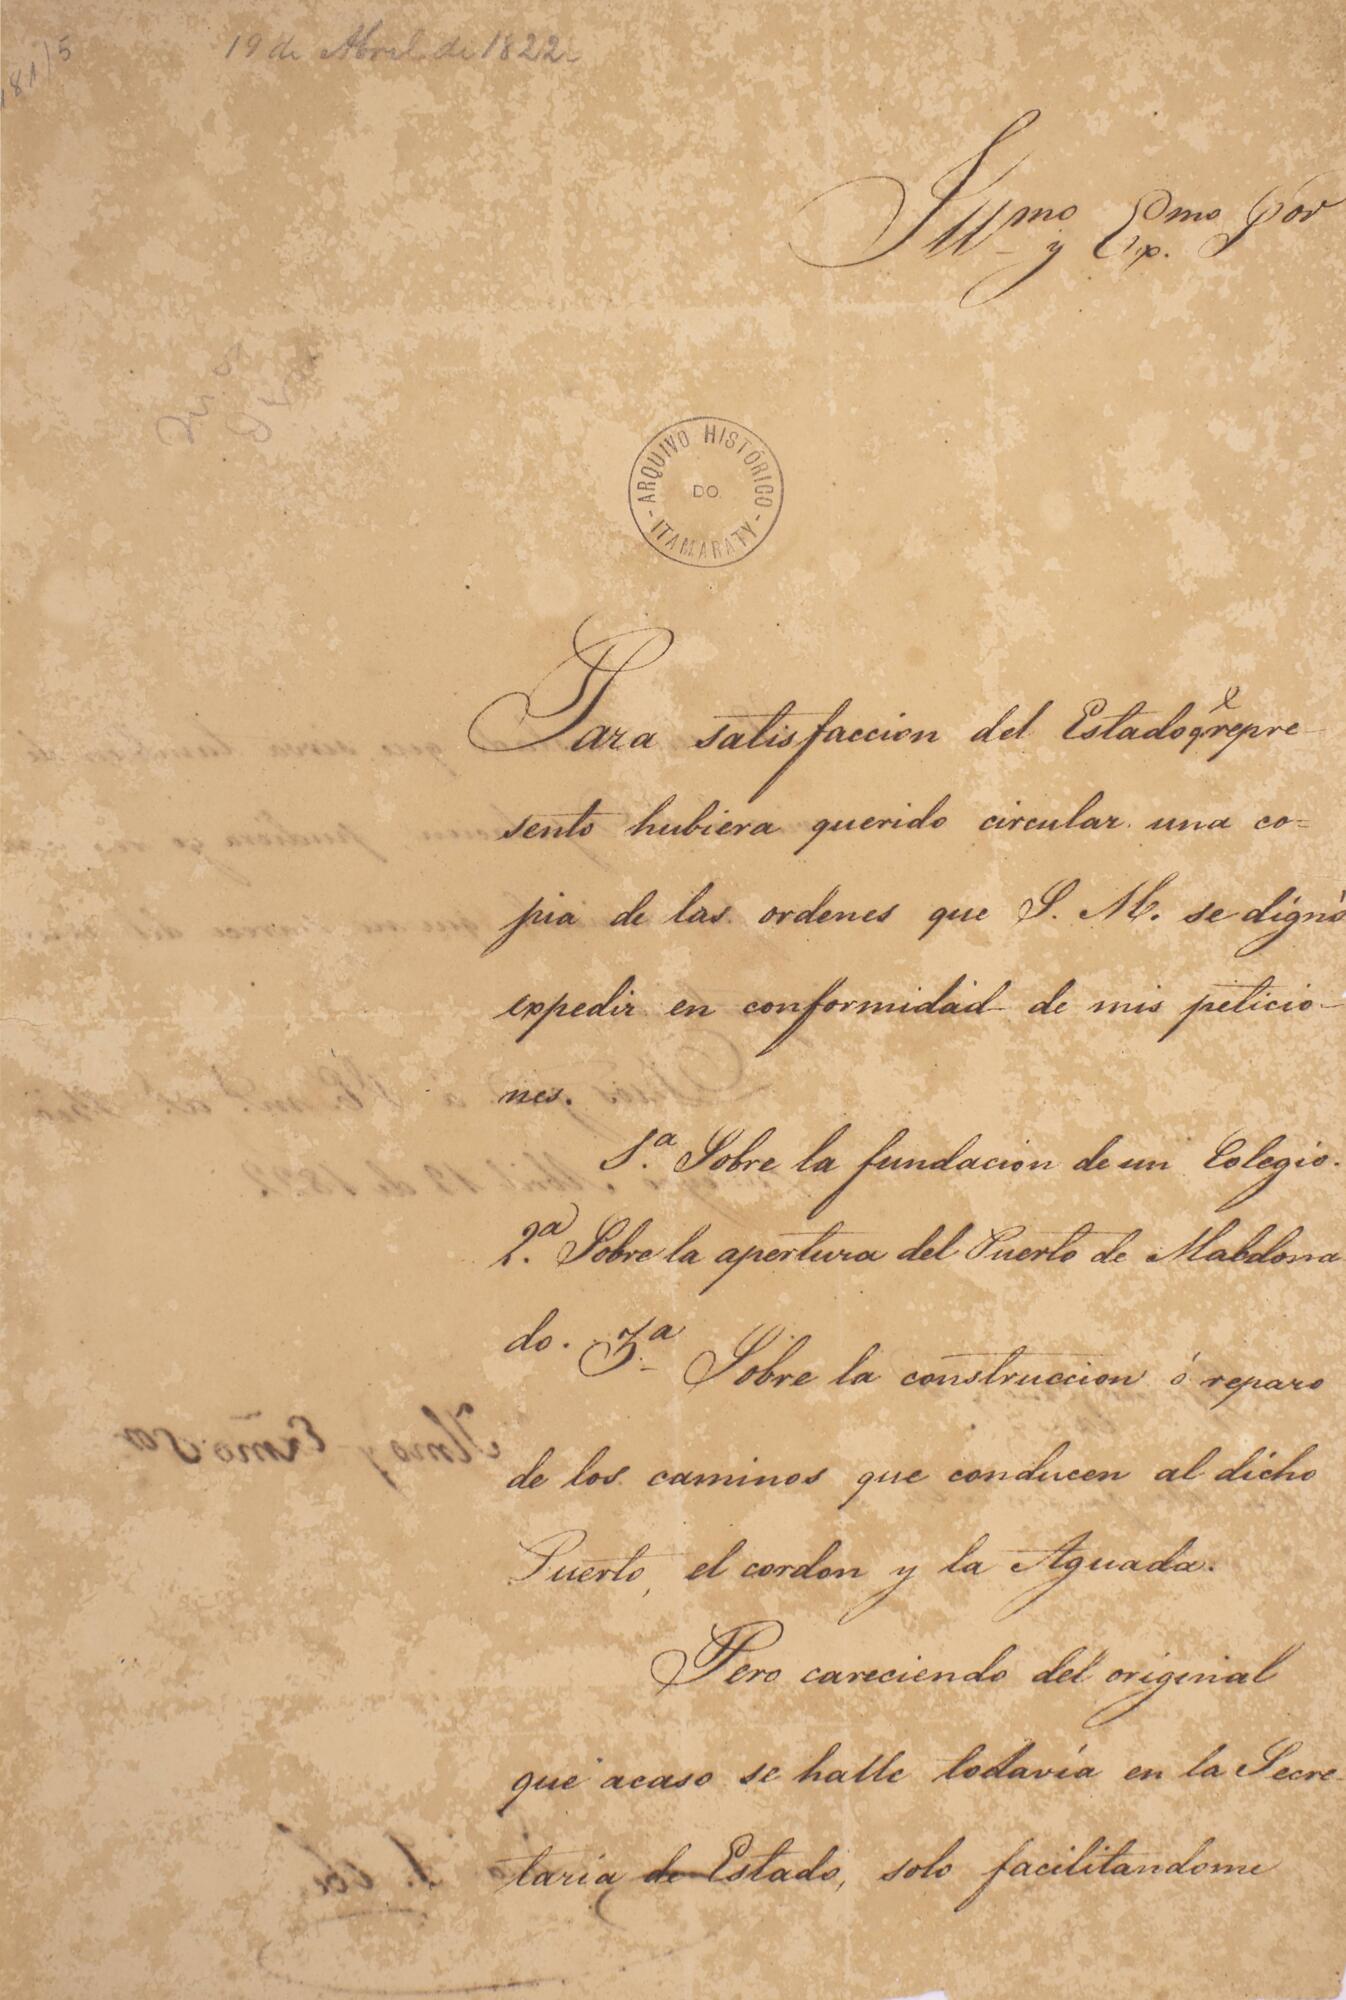 181/5
19 de Abril de 1822
Illmo y Exp.mo Sor
ARQUIVO HISTÓRICO
DO
- ITAMARATY -
Para satisfaccion del Estado qe repre-
sento hubiera querido circular una co=
pia de las ordenes que S. M. se dignó
expedir en conformidad de mis peticio-
nes.
1.a Sobre la fundacion de un Colegio.
2.a Sobre la apertura del Puerto de Maldona
do. 3.a Sobre la construccion ó reparo
de los caminos que conducen al dicho
Puerto, el cordon y la Aguada.
Pero careciendo del original
que acaso se halle todavía en la Secre-
taria de Estado, solo facilitandome